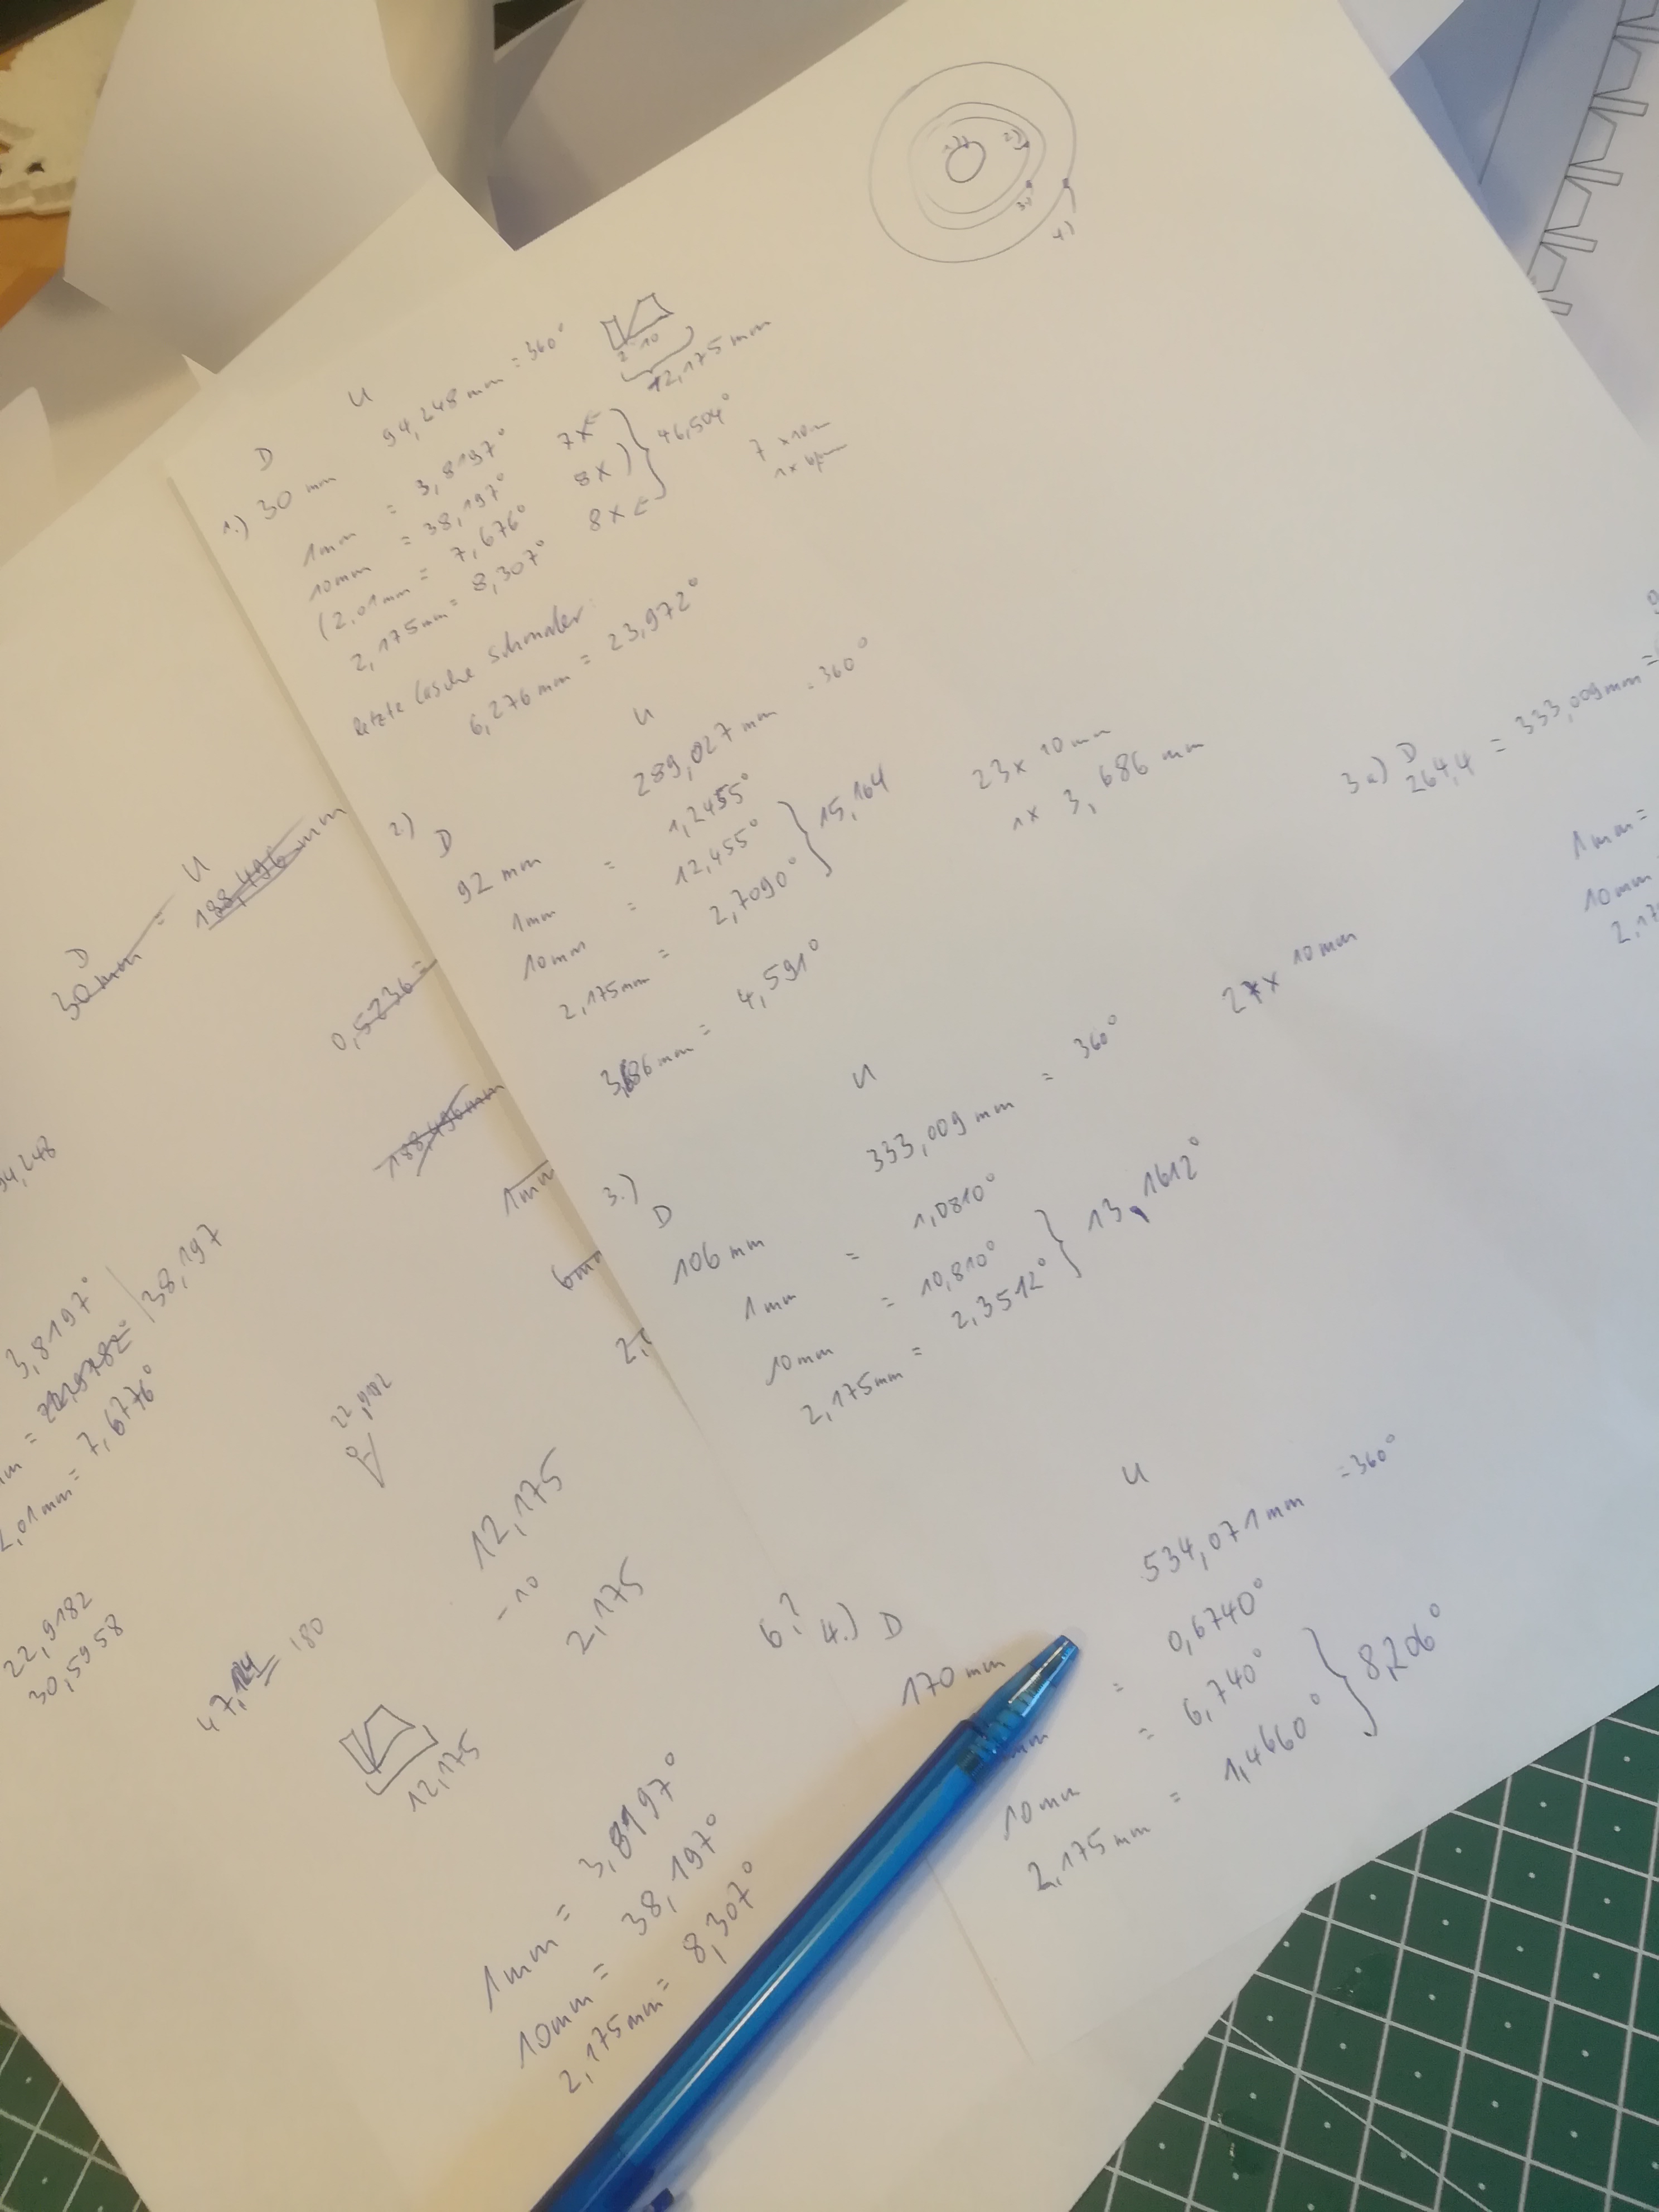 1)
2)
3)
4)
D
U
1.) 30 mm 94,248 mm = 360°
2 10
12,175 mm
1mm = 3,8197° 7x
10mm = 38,197° 8x
(2,01mm = 7,676° 8x
46,504°
7 x 10mm
2,175mm = 8,307°
letzte Lasche schmaler:
6,276 mm = 23,972°
2.) D U
92 mm 289,027 mm = 360°
1mm = 1,2455°
10mm = 12,455°
2,175mm = 2,7090°
15,164
23x 10mm
1x 3,686 mm
3,686mm = 4,591°
3.) D U
106 mm 333,009 mm = 360° 27x 10mm
1mm = 1,0810°
10mm = 10,810°
2,175mm = 2,3512°
13,1612°
3a) D
264,4 = 333,009mm =
1mm =
10mm
2,17
6? 4.) D U
170 mm 534,071 mm = 360°
mm = 0,6740°
10mm = 6,740°
2,175mm = 1,4660°
8,206°
D U
30mm = 188,496 mm
0,5236 =
188,496mm
1mm
6m
2,
94,248
3,8197°
38,197
2,01mm = 7,6776°
22,9182
30,5958
180
12,175
-10
2,175
12,175
1mm = 3,8197°
10mm = 38,197°
2,175mm = 8,307°